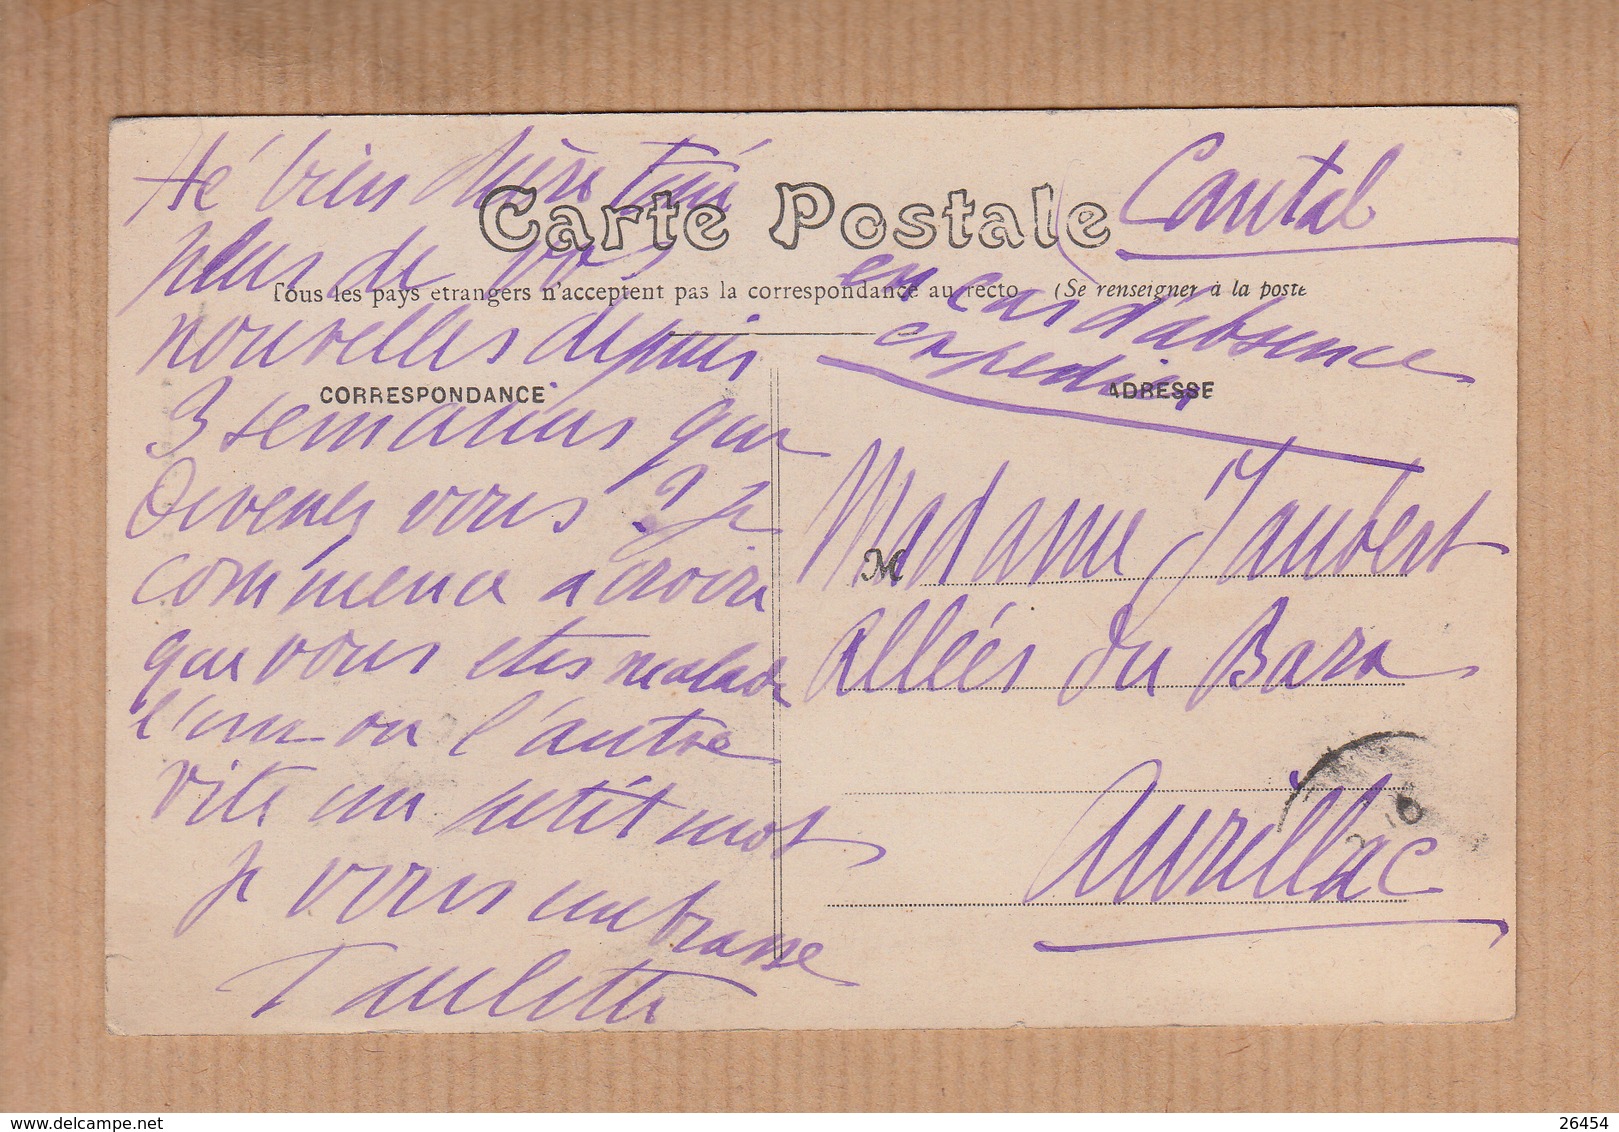 Hé bien chère
plus de vos
nouvelles depuis
3 semaines que
devenez vous ? Je
commence a croire
que vous etes malade
l'un ou l'autre
vite un petit mot
Je vous embrasse
Paulette
Carte Postale
Tous les pays etrangers n'acceptent pas la correspondance au recto (Se renseigner à la poste
CORRESPONDANCE
ADRESSE
Cantal
en cas d'absence
expedier
M
Madame Jaubert
Allées du Bara
Aurillac
delcampe.net
26454